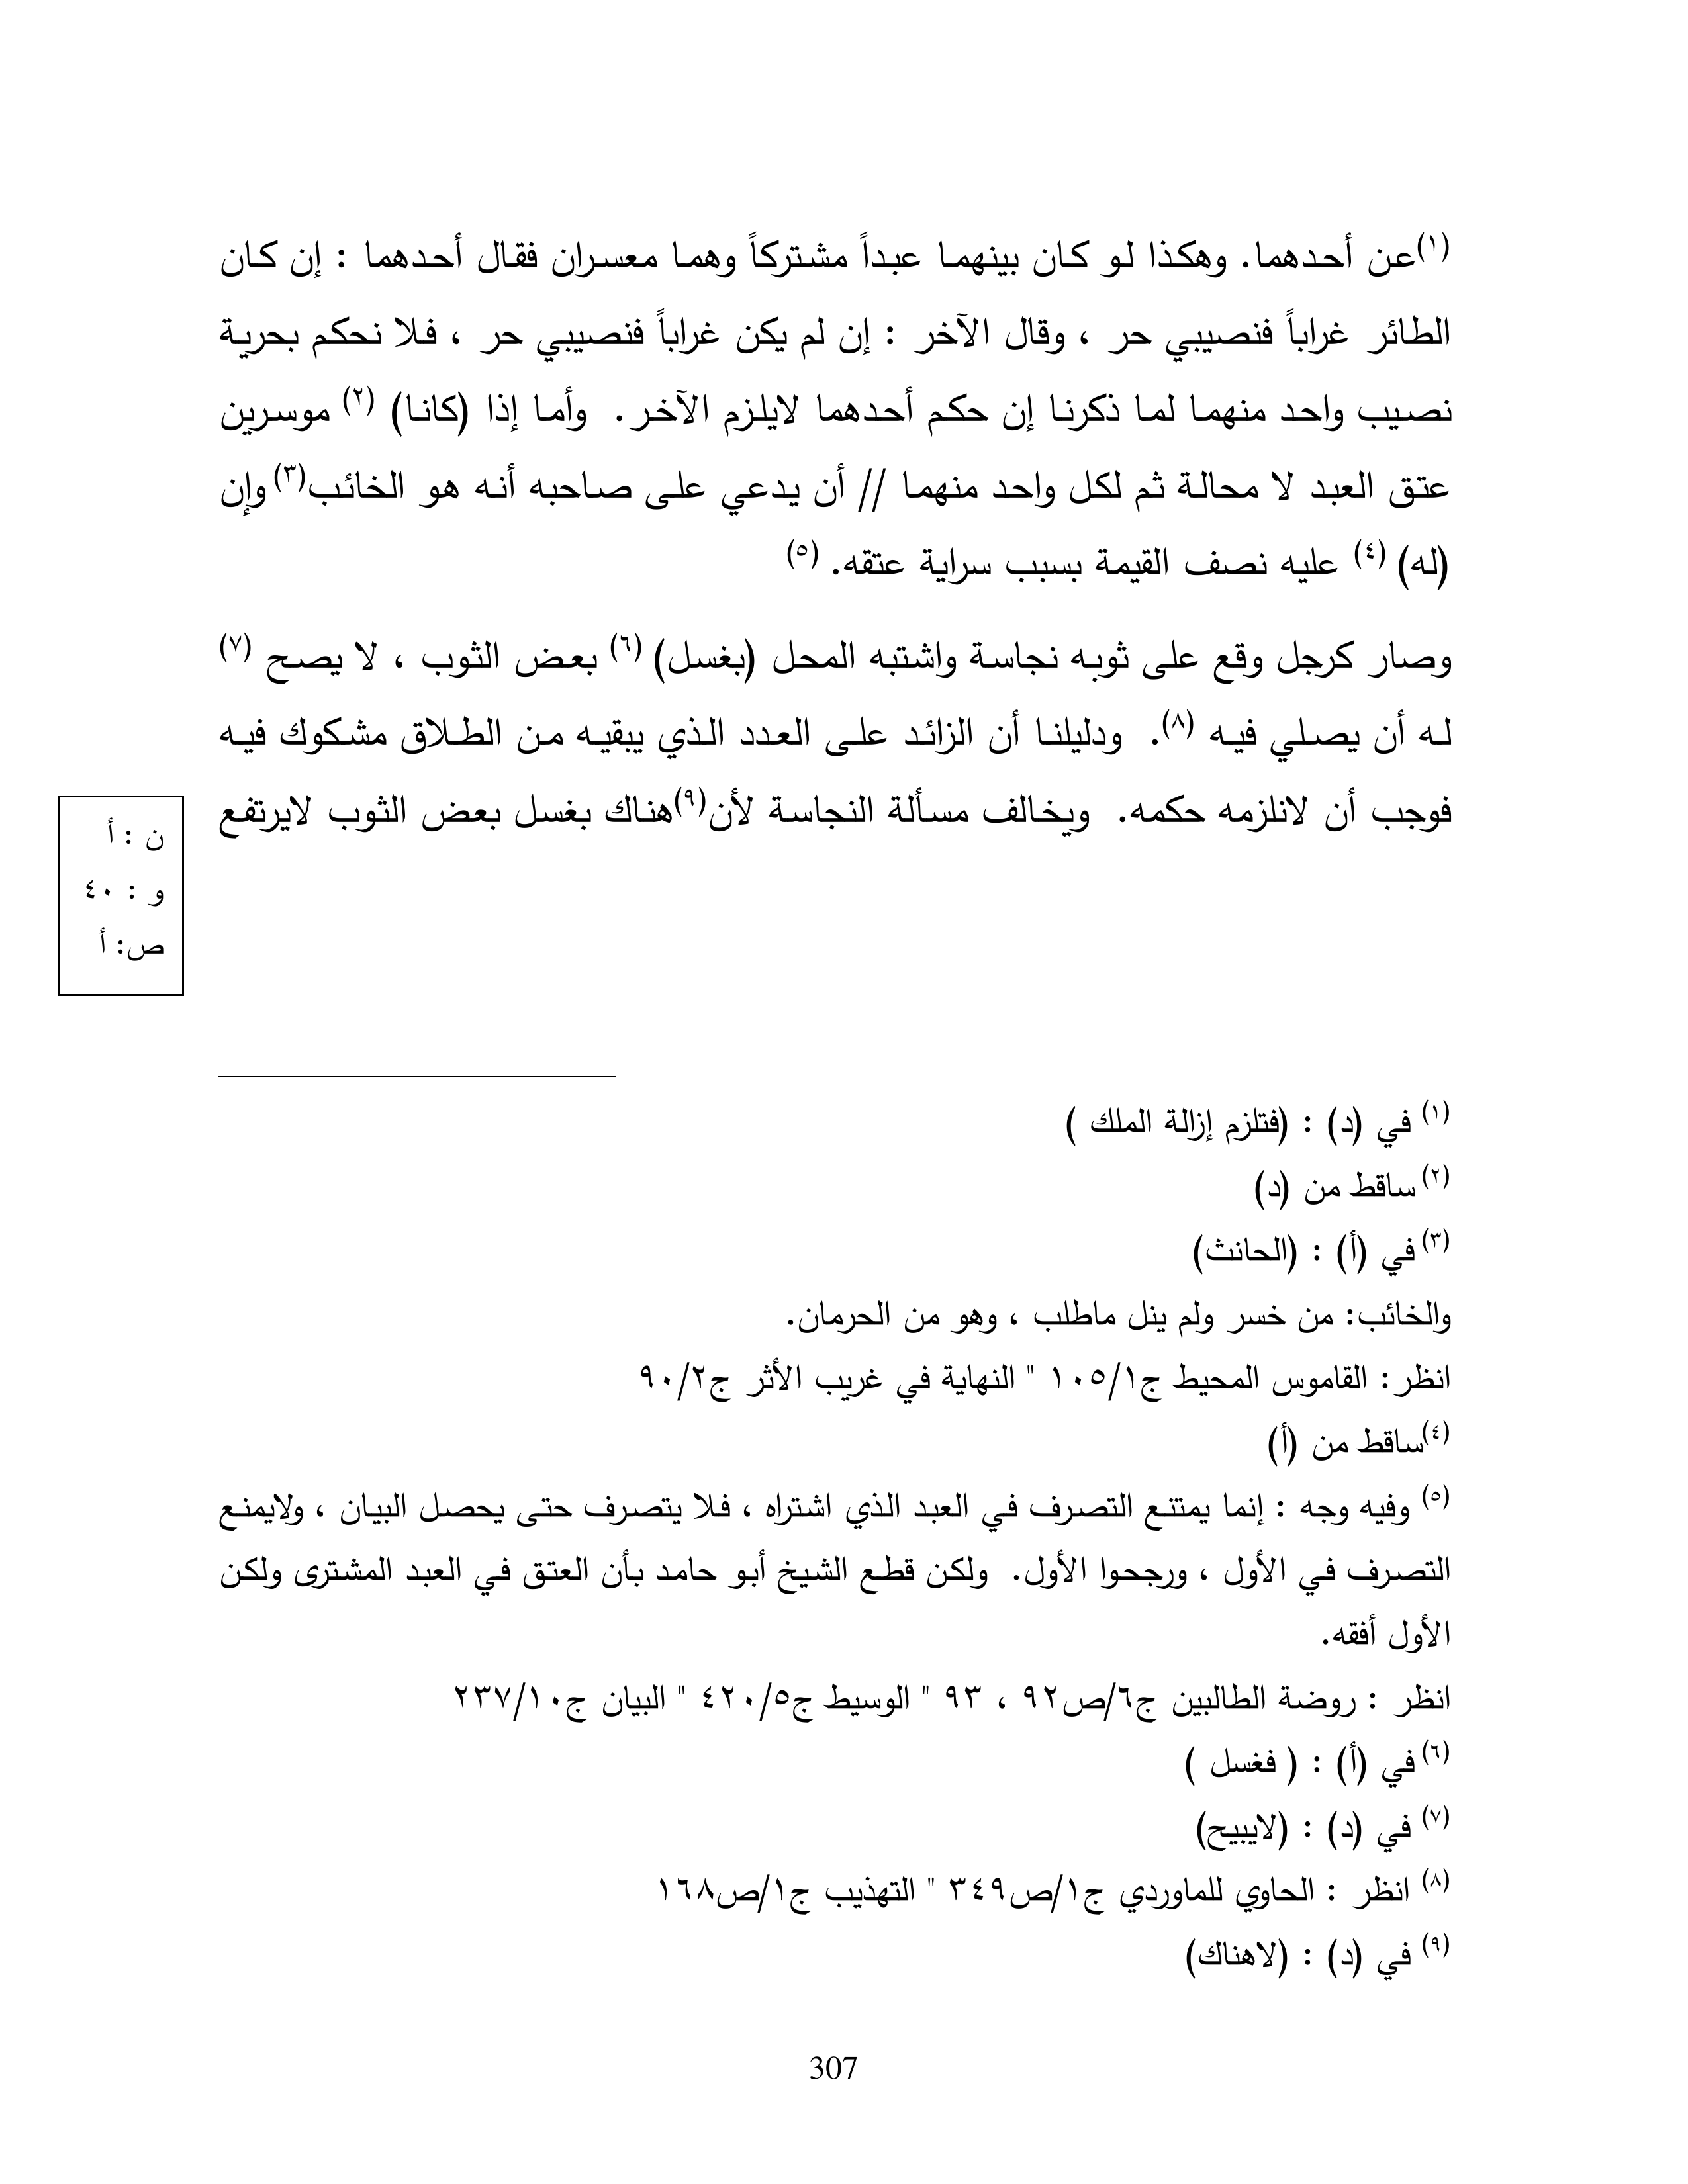 (١)عن أحدهما. وهكذا لو كان بينهما عبداً مشتركاً وهما معسران فقال أحدهما : إن كان
الطائر غراباً فنصيبي حر ، وقال الآخر : إن لم يكن غراباً فنصيبي حر ، فلا نحكم بحرية
نصيب واحد منهما لما ذكرنا إن حكم أحدهما لايلزم الآخر. وأما إذا (كانا) (٢) موسرين
عتق العبد لا محالة ثم لكل واحد منهما // أن يدعي على صاحبه أنه هو الخائب(٣) وإن
(له) (٤) عليه نصف القيمة بسبب سراية عتقه. (٥)
وصار كرجل وقع على ثوبه نجاسة واشتبه المحل (بغسل) (٦) بعض الثوب ، لا يصح (٧)
له أن يصلي فيه (٨). ودليلنا أن الزائد على العدد الذي يبقيه من الطلاق مشكوك فيه
فوجب أن لانلزمه حكمه. ويخالف مسألة النجاسة لأن(٩)هناك بغسل بعض الثوب لايرتفع
ن : أ
و : ٤٠
ص: أ
(١) في (د) : (فتلزم إزالة الملك )
(٢) ساقط من (د)
(٣) في (أ) : (الحانث)
والخائب: من خسر ولم ينل ماطلب ، وهو من الحرمان.
انظر: القاموس المحيط ج١/١٠٥ " النهاية في غريب الأثر ج٢/٩٠
(٤)ساقط من (أ)
(٥) وفيه وجه : إنما يمتنع التصرف في العبد الذي اشتراه ، فلا يتصرف حتى يحصل البيان ، ولايمنع
التصرف في الأول ، ورجحوا الأول. ولكن قطع الشيخ أبو حامد بأن العتق في العبد المشترى ولكن
الأول أفقه.
انظر : روضة الطالبين ج٦/ص٩٢ ، ٩٣ " الوسيط ج٥/٤٢٠ " البيان ج١٠/٢٣٧
(٦) في (أ) : ( فغسل )
(٧) في (د) : (لايبيح)
(٨) انظر : الحاوي للماوردي ج١/ص٣٤٩ " التهذيب ج١/ص١٦٨
(٩) في (د) : (لاهناك)
307